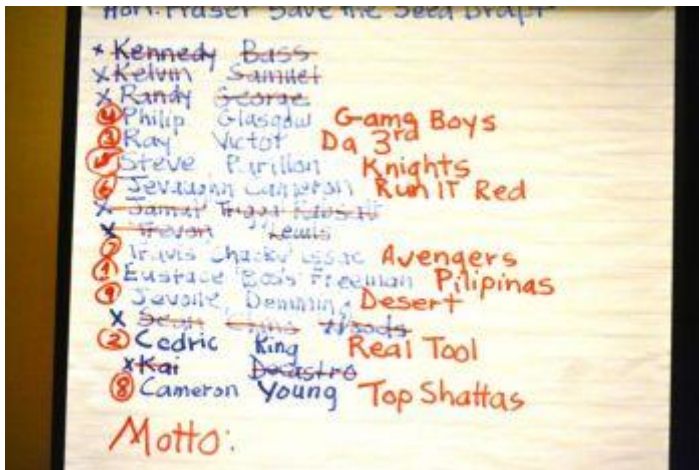 Hon. Fraser Save the Seed Draft
x Kennedy Bass
x Kelvin Samuel
x Randy George
④ Philip Glasgow Gamg Boys
③ Ray Victor Da 3rd
⑤ Steve Parillon Knights
⑥ Jevaughn Cameron Run IT Red
x Jamal Trigga
x Trevon Lewis
⑦ Travis Chacku Issac Avengers
① Eustrace "Boo's Freeman Pilipinas
⑨ Javone, Demming Desert
x Sean China Woods
② Cedric King Real Tool
x Kai DeCastro
⑧ Cameron Young Top Shattas
Motto: